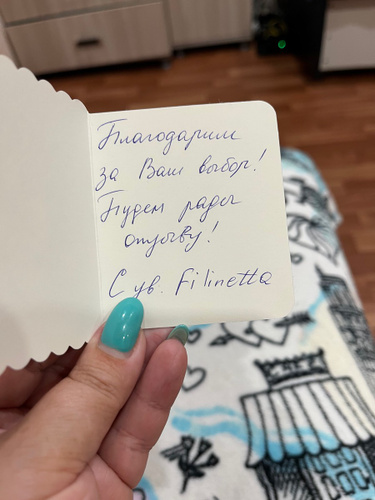 Благодарим
за Ваш выбор!
Будем рады
отзыву!
С ув. Filinetta